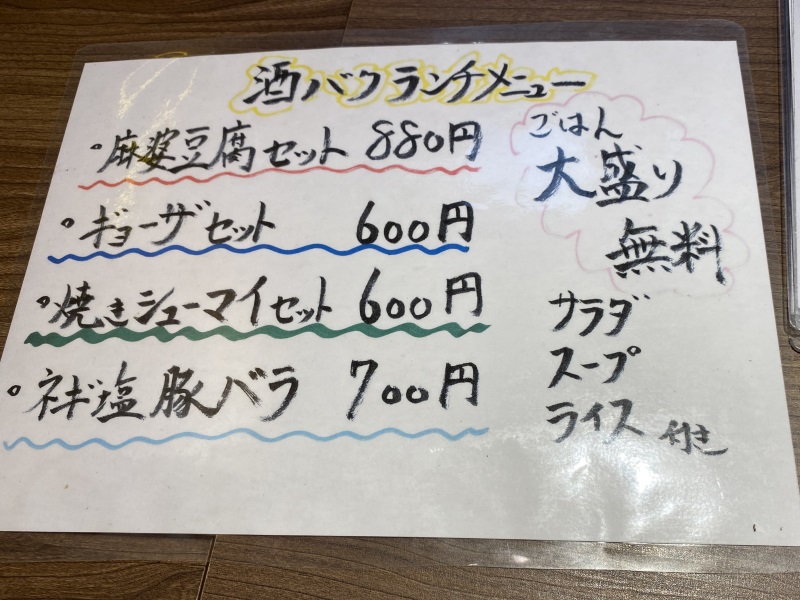 酒バクランチメニュー
。麻婆豆腐セット 880円
。ギョーザセット 600円
。焼きシューマイセット 600円
。ネギ塩豚バラ 700円
ごはん
大盛り
無料
サラダ
スープ
ライス 付き